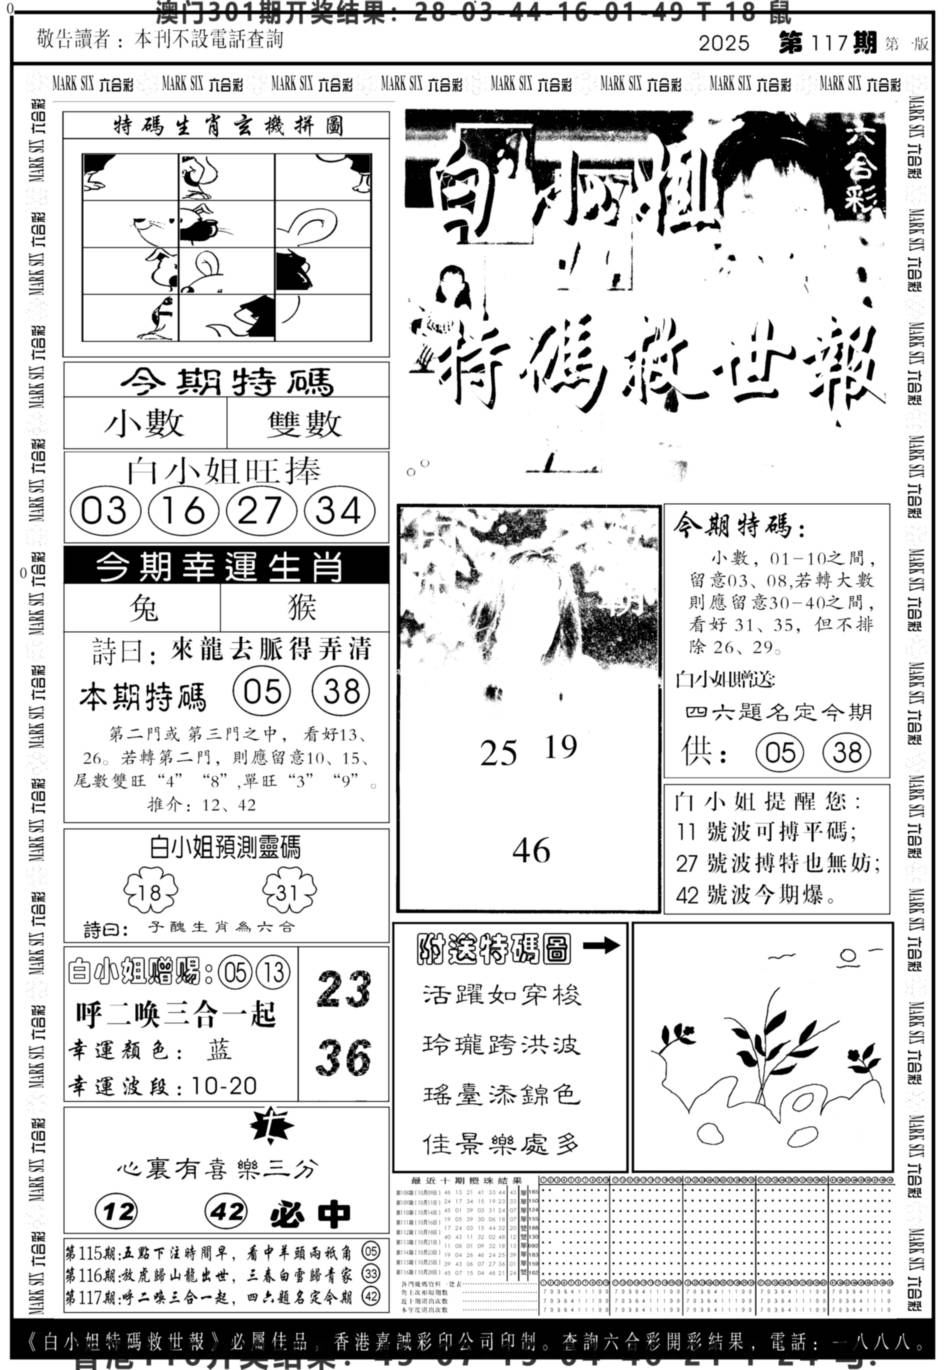 澳门301期开奖结果：28-03-44-16-01-49 T 18 鼠
敬告讀者：本刊不設電話查詢
2025 第117期 第一版
MARK SIX 六合彩 MARK SIX 六合彩 MARK SIX 六合彩 MARK SIX 六合彩 MARK SIX 六合彩 MARK SIX 六合彩 MARK SIX 六合彩 MARK SIX 六合彩
特碼生肖玄機拼圖
六合彩
白小姐
特碼救世報
今期特碼
小數 雙數
白小姐旺捧
03 16 27 34
今期幸運生肖
兔 猴
詩曰：來龍去脈得弄清
本期特碼 05 38
第二門或第三門之中，看好13、
26。若轉第二門，則應留意10、15、
尾數雙旺“4”“8”,單旺“3”“9”。
推介：12、42
白小姐預測靈碼
18 31
詩曰：子醜生肖為六合
白小姐赠赐：05 13
呼二唤三合一起
幸運顏色：蓝
幸運波段：10-20
23
36
心裏有喜樂三分
12 42 必中
第115期:五點下注時間早，看中羊頭兩祇角 05
第116期:放虎歸山龍出世，三春白雪歸青家 33
第117期:呼二喚三合一起，四六題名定今期 42
25 19
46
今期特碼：
小數，01-10之間，
留意03、08,若轉大數
則應留意30-40之間，
看好 31、35，但不排
除 26、29。
白小姐贈送:
四六題名定今期
供：05 38
白小姐提醒您：
11 號波可搏平碼；
27 號波搏特也無妨；
42 號波今期爆。
附送特碼圖
活躍如穿梭
玲瓏跨洪波
瑤臺添錦色
佳景樂處多
最近十期攪珠結果
《白小姐特碼救世報》必屬佳品，香港嘉誠彩印公司印制。查詢六合彩開彩結果，電話：一八八八。